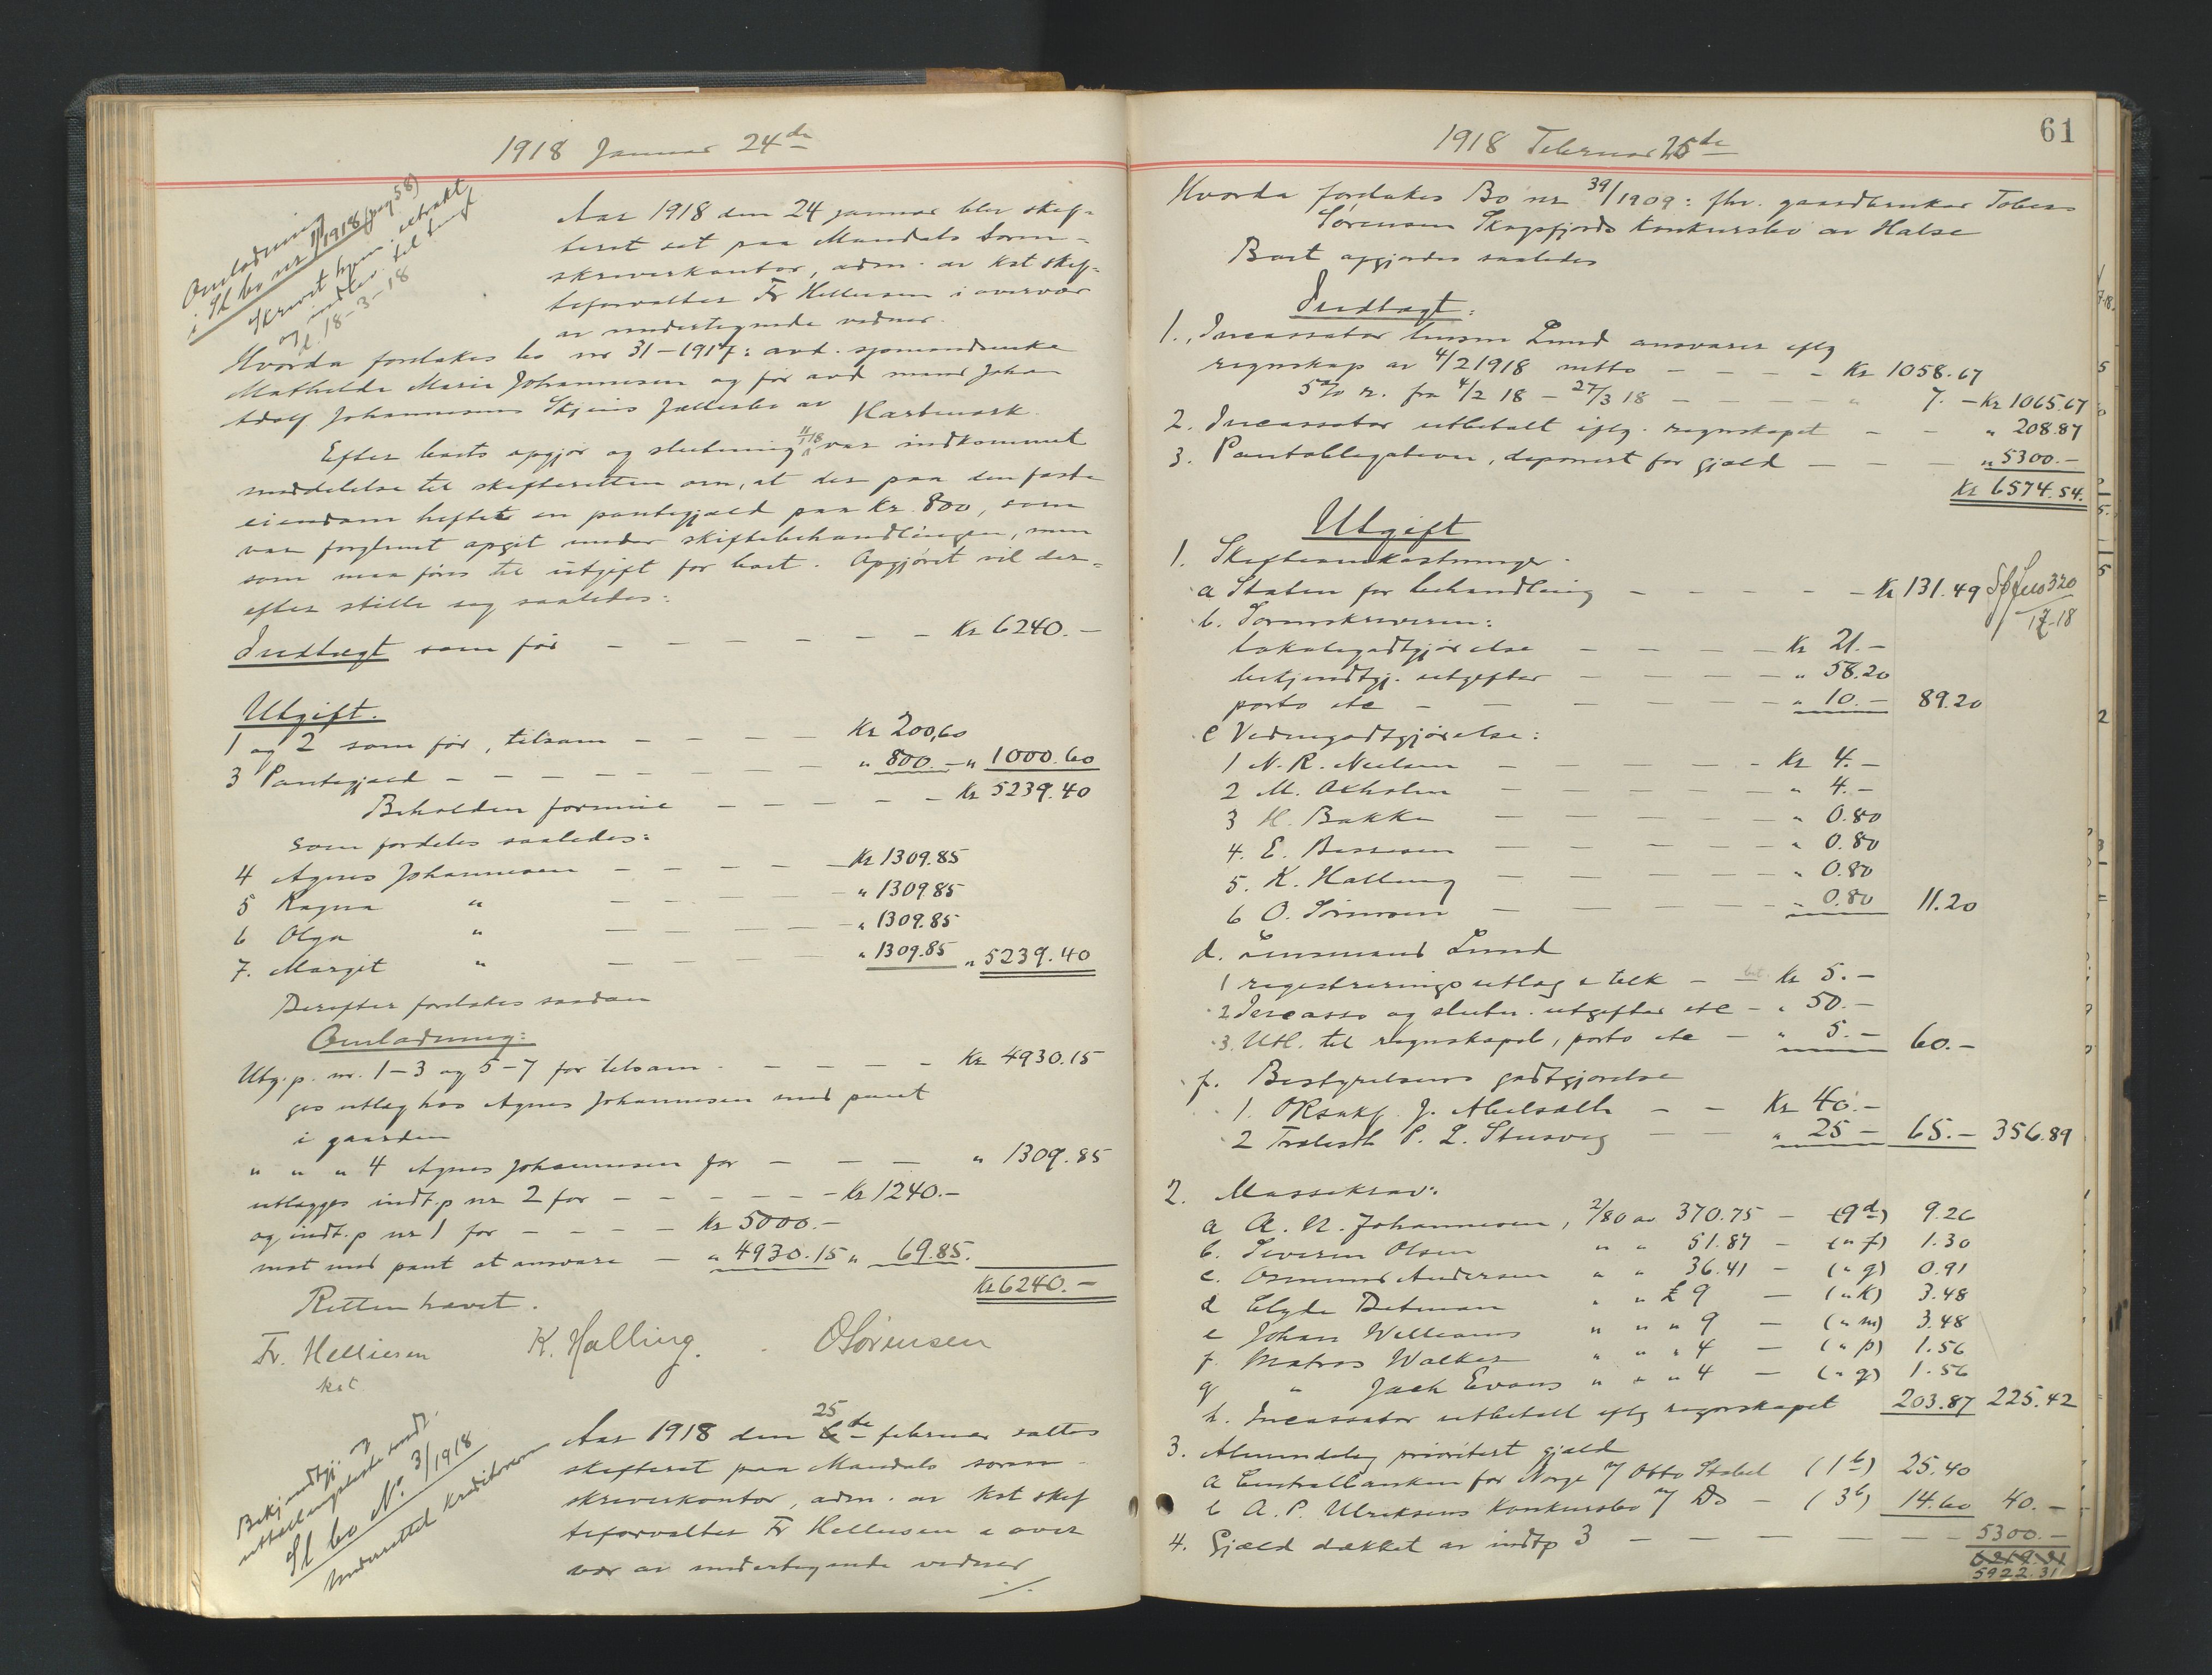 1918 Januar 24de
Omlodning
i Sl bo nr 1/1918 (pag 58)
skrevet hjem. utrakt
og indlev. til tingl
d. 18-3-18
Aar 1918 den 24 januar blev skif-
teret sat paa Mandals soren-
skriverkontor, adm. av kst skif-
teforvalter Fr Helliesen i overvær
av undertegnede vidner.
Hvorda foretakes bo nr 31-1917: avd. sjømandsenke
Mathilde Marie Johannesen og før avd mand Johan
Adolf Johannesens Skjeins fællesbo av Hartmark.
Efter boets opgjør og slutning 11/1 18 var indkommet
meddelelse til skifteretten om, at der paa den faste
eiendom heftet en pantegjæld paa Kr. 800, som
var forglemt opgit under skiftebehandlingen, men
som maa føres til utgift for boet. Opgjøret vil der-
efter stille sig saaledes:
Indtægt som før — — — — — Kr 6240.—
Utgift.
1 og 2 som før, tilsam — — — — Kr 200,60
3 Pantegjæld — — — — — — " 800.— " 1000.60
Beholden formue — — — — — Kr 5239.40
som fordeles saaledes:
4 Agnes Johannesen — — — — Kr 1309.85
5 Ragna " — — — — " 1309.85
6 Olga " — — — — " 1309.85
7. Margit " — — — " 1309.85 " 5239.40
Derefter foretakes saadan
Omlodning:
Utg.p. nr. 1-3 og 5-7 for tilsam. — — — — Kr 4930.15
gis utlæg hos Agnes Johannesen med pant
i gaarden
" " " 4 Agnes Johannesen for — — — " 1309.85
utlægges indt.p nr 2 for — — — — — Kr 1240.—
og indt.p nr 1 for — — — — Kr 5000.—
mot med pant at ansvare — " 4930.15 " 69.85.
Kr 6240.—
Retten hævet.
Fr. Helliesen K. Halling. OSørensen
kst
Bekjendtgj. og
utdelingsliste uts.
Sl bo No. 3/1918
Underrettet kreditorerne
Aar 1918 den 25de februar sattes
skifteret paa Mandals soren-
skriverkontor, adm. av kst skif
teforvalter Fr Helliesen i over
vær av undertegnede vidner
./.
1918 Februar 25de
61
Hvorda foretakes Bo nr 39/1909: fhv. gaardbruker Tobias
Sørensen Skogsfjords konkursbo av Halse
Boet opgjordes saaledes
Indtægt:
1., Incassator lensm Lund ansvarer iflg
regnskap av 4/2 1918 netto — — — — Kr 1058.67
5% r. fra 4/2 18 – 27/3 18 — — — — " 7. — Kr 1065.67
2. Incassator utbetalt iflg. regnskapet — — " 208.87
3. Pantobligationer, deponert for gjæld — — — " 5300.—
Kr 6574.54.
Utgift
1. Skifteomkostninger:
a Staten for behandling — — — — — Kr 131.49
320
17-18
b. Sorenskriveren:
lokalegodtgjørelse — — — — Kr 21.—
bekjendtgj. utgifter — — — — " 58.20
porto etc — — — — — " 10.— 89.20
c Vidnegodtgjørelse:
1 N. R. Neelsen — — — — Kr 4.—
2 M. Oxholm — — — — — " 4.—
3 H. Bakke — — — — — " 0.80
4. E. Bessesen — — — — — " 0.80
5. K. Halling — — — — — " 0.80
6 O. Sørensen — — — — — " 0.80 11.20
d. Lensmand Lund
1 registrerings utlæg e telk — bet. Kr 5.—
2 Incasso og slutn. utgifter etc — " 50.—
3. Utl. til regnskapet, porto etc — " 5.— 60.—
f. Bestyrelsens godtgjørelse
1. ORsakf. J. — — Kr 40.—
2 P. L. Stusvig — — " 25 — 65.— 356.89
2. Massekrav:
a A. N. Johannesen, 2/80 av 370.75 — (9d) 9.26
b. Severin Olsen " " 51.87 — (" f) 1.30
c. Osmund Andersen " " 36.41 — (" g) 0.91
d Clyde Detman " " £ 9 — (" k) 3.48
e Johan Williams " " " 9 — (" m) 3.48
f. Matros Walker " " " 4 — (" p) 1.56
g " Jack Evans " " " 4 — (" q) 1.56
h. Incassator utbetalt iflg regnskapet 203.87 225.42
3. Almindelig prioritert gjæld
a Centralbanken for Norge m/ Otto Stabel (1b) 25.40
b A. P. Ulriksens Konkursbo m/ Do — (3b) 14.60 40.—
4. Gjæld dækket av indtp 3 — — — — — — 5300.—
5922.31